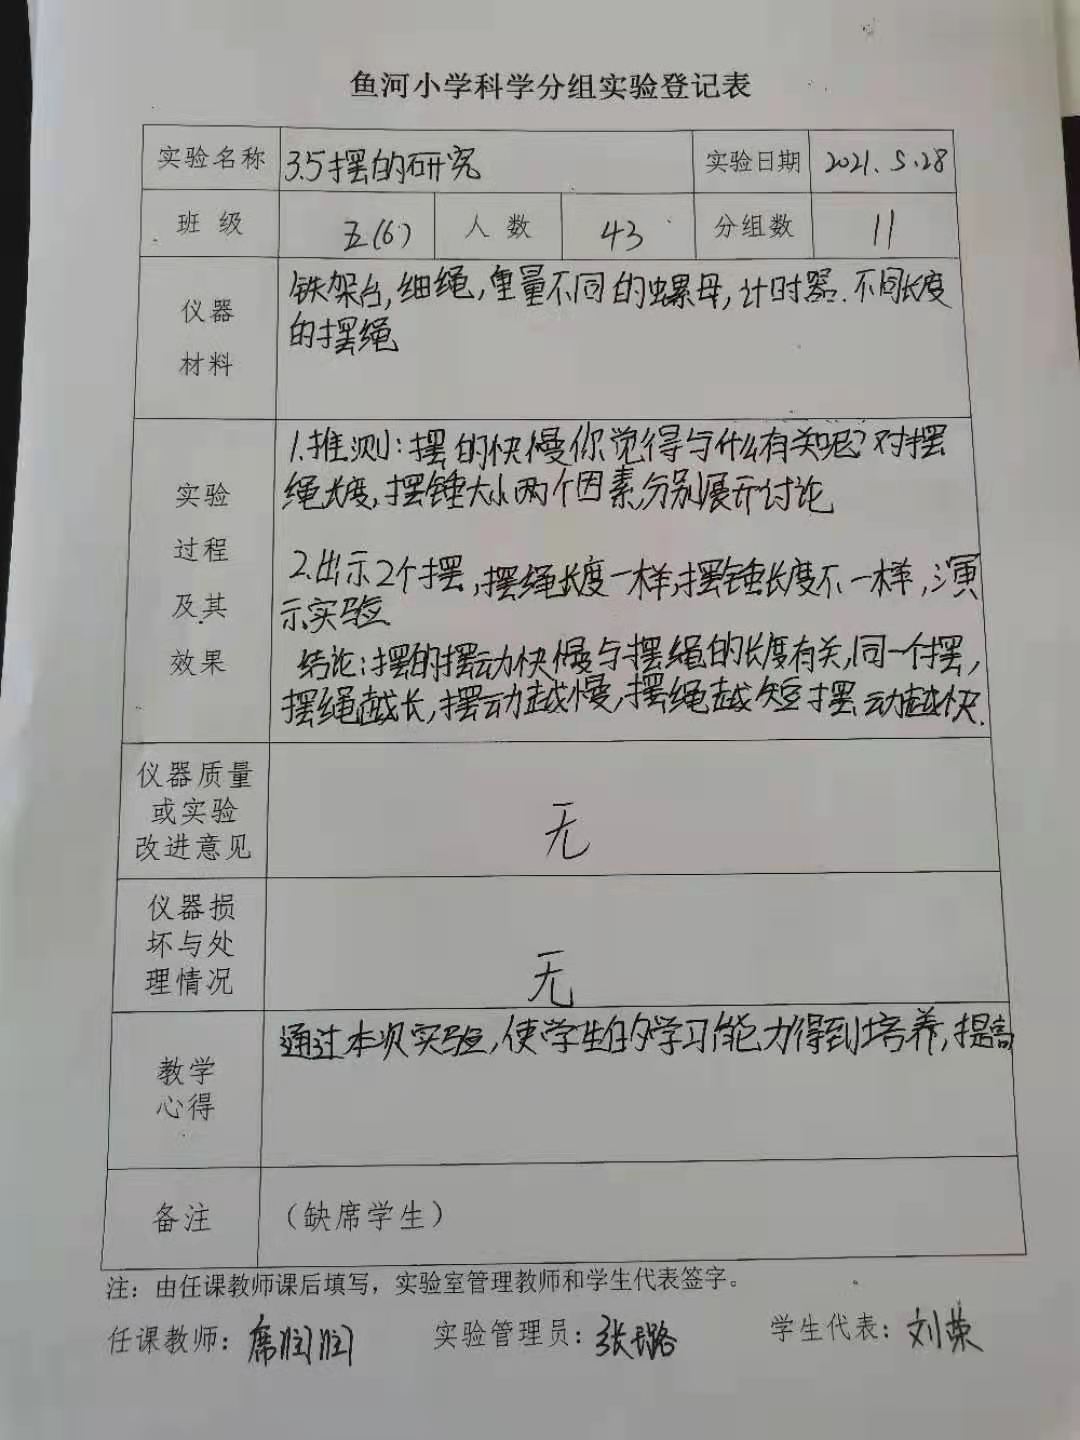 鱼河小学科学分组实验登记表
实验名称 3.5摆的研究 实验日期 2021.5.28
班级 五(6) 人数 43 分组数 11
仪器
材料
铁架台,细绳,重量不同的螺母,计时器.不同长度
的摆绳
实验
过程
及其
效果
1.推测:摆的快慢你觉得与什么有关呢?对摆
绳长度,摆锤大小两个因素,分别展开讨论
2.出示2个摆,摆绳长度一样,摆锤长度不一样,演
示实验.
结论:摆的摆动快慢与摆绳的长度有关,同一个摆,
摆绳越长,摆动越慢,摆绳越短摆动越快.
仪器质量
或实验
改进意见
无
仪器损
坏与处
理情况
无
教学
心得
通过本次实验,使学生的学习能力得到培养,提高
备注 （缺席学生）
注：由任课教师课后填写，实验室管理教师和学生代表签字。
任课教师： 实验管理员：张 路 学生代表：刘荣